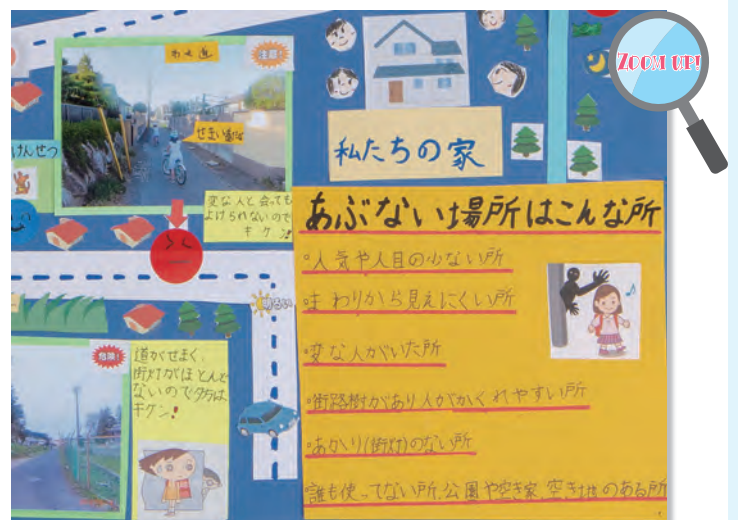 ZOOM UP!
わき道
注意!
せまい道だな
けんせつ
変な人と会っても
よけられないので
キケン!
私たちの家
あぶない場所はこんな所
・人気や人目の少ない所
・まわりから見えにくい所
・変な人がいた所
・街路樹があり人がかくれやすい所
・あかり(街灯)のない所
誰も使ってない所、公園や空き家、空き地のある所
危険!
道がせまく、
街灯がほとんど
ないので夕方は
キケン!